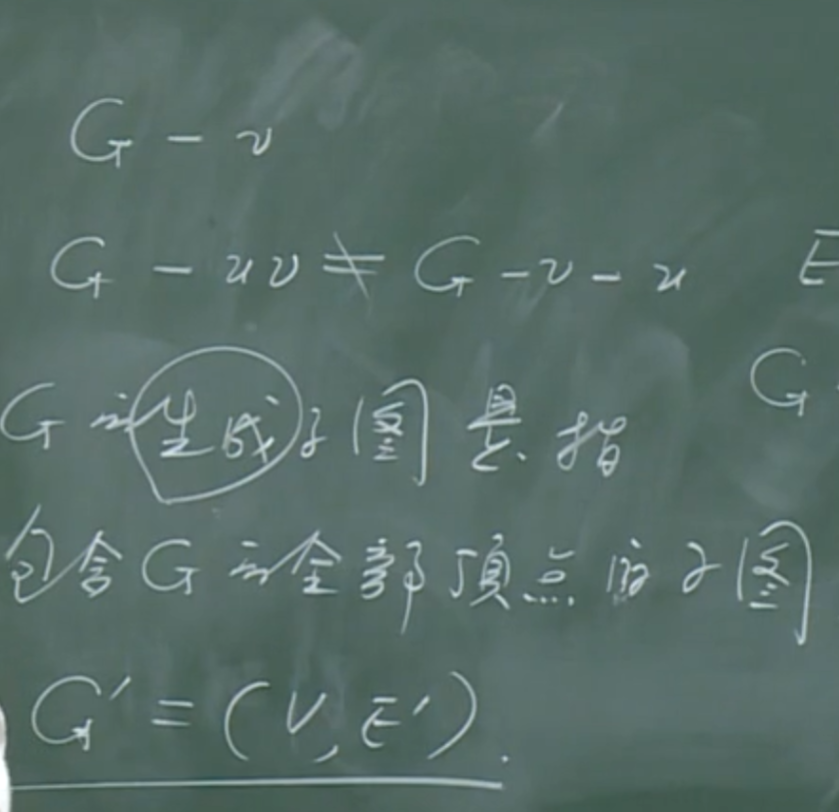 G - v
G - uv ≠ G - v - u E
G
G 的生成子图是指
包含 G 的全部顶点的子图
G' = (V, E').